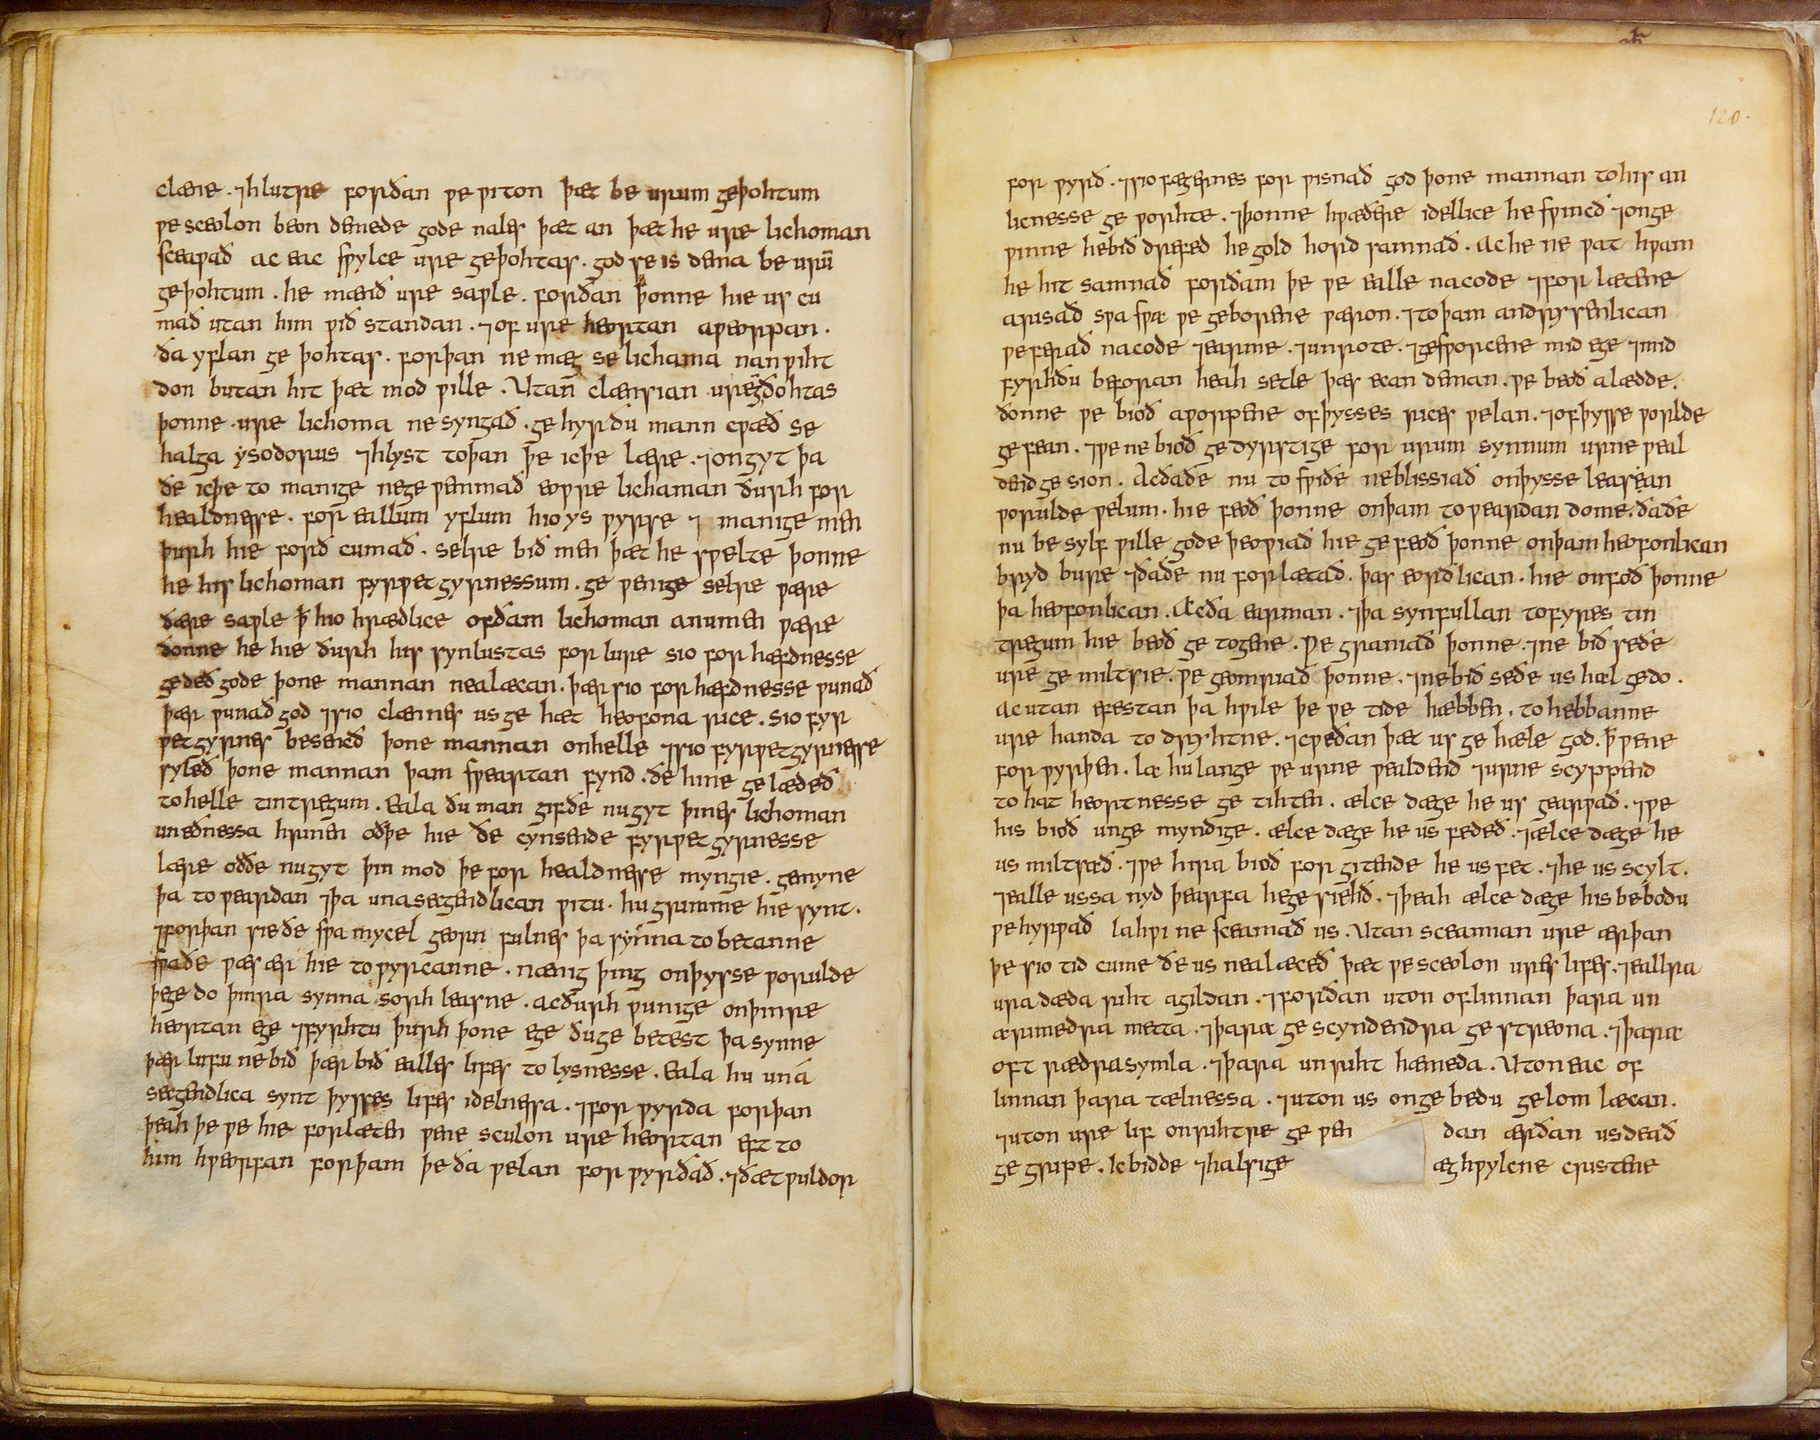 clæne · ⁊hlutre forðan ƿe ƿiton þæt be urum geþohtum
ƿe sceolon beon demede gode nales þæt an þæt he ure lichoman
sceaƿað ac eac sƿylce ure geþohtas · god se is dema be urū
geþohtum · he mænð ure saƿle · forðan þonne hie us cu
mað utan him ƿið standan · ⁊of ure heortan aƿeorpan ·
ða yflan ge þohtas · forþan ne mæg se lichama nan ƿiht
don butan hit þæt mod ƿille · Utan clænsian ure geðohtas
þonne · ure lichoma ne syngað · ge hyrðu mann cƿæð se
halga ysodorus ⁊hlyst toþan þe icþe lære · ⁊ongyt þa
ðe icþe to manige nege ƿemmað eoƿre lichaman ðurh for
healdnesse · for eallum yflum hio ys ƿyrse ⁊ manige men
þurh hie forð cumað · selre bið men þæt he sƿelte þonne
he his lichoman fyrƿet gyrnessum · ge ƿemge selre ƿære
ðære saƿle þ̄ hio hrædlice ofðam lichoman anumen ƿære
ðonne he hie ðurh his synlustas for lure sio for hæfdnesse
gedeð gode þone mannan nealæcan · þær sio for hæfdnesse ƿunað
þær ƿunað god ⁊sio clænnes us ge hæt heofona rice · sio fyr
ƿet gyrnes besencð þone mannan onhelle ⁊sio fyrƿet gyrnesse
syleð þone mannan þam sƿeartan fynd · ðe hine gelædeð
tohelle tintregum · Eala ðu man gifðe nugyt þines lichoman
unednessa hrinen oðþe hie ðe cynsende fyrƿet gyrnesse
lære oððe nugyt þin mod þe for healdnesse myngie · gemyne
þa to ƿeardan ⁊þa unasegendlican ƿitu · hu grimme hie synt ·
⁊forþan sie ðe sƿa mycel georn fulnes þa synna to betanne
sƿaðe ƿæs ær hie to ƿyrcanne · nænig þing onþysse ƿorulde
þege do þinra synna sorh learne · acðurh ƿunige onþinre
heortan ege ⁊fyrhtu þurh þone ege ðuge betest þa synne
þær lufu ne bið þær bið ealles lifes to lysnesse · Eala hu una
segendlica synt þysses lifes idelnessa · ⁊for ƿyrda forþan
þeah þe ƿe hie forlæten ƿene sculon ure heortan eft to
him hƿerfan forþam þe ða ƿelan for ƿyrðað · ⁊ðæt ƿuldor
120·
for ƿyrð · ⁊sio fægernes for ƿisnað god þone mannan tohis an
licnesse ge ƿorhte · ⁊þonne hƿæðere idellice he sƿincð ⁊onge
ƿinne hebið drefed he gold hord samnað · Ac he ne ƿat hƿam
he hit samnað forðam þe ƿe ealle nacode ⁊for lætene
arisað sƿa sƿæ ƿe geborene ƿæron · ⁊toþam andrysenlican
ƿe ferað nacode ⁊earme · ⁊unrote · ⁊gesƿorcene mid ege ⁊mid
fyrhðu beforan heah setle þæs ecan deman · ƿe beoð alædde ·
ðonne ƿe bioð aƿorpene ofþysses rices ƿelan · ⁊ofþysse ƿorlde
ge fean · ⁊ƿe ne bioð ge dyrstige for urum synnum urne ƿeal
dend ge sion · Acðaðe nu to sƿiðe neblissiað onþysse learean
ƿorulde ƿelum · hie feoð þonne onþam to ƿeardan dome · ðaðe
nu be sylf ƿille gode þeoƿiað hie ge feoð þonne onþam heofonlican
bryd bure ⁊ðaðe nu forlætað · þas eorðlican · hie onfoð þonne
þa heofonlican · Ac ða earman · ⁊þa synfullan tofyres tin
tregum hie beoð ge togene · Ƿe graniað þonne · ⁊ne bið seðe
ure ge miltsie · ƿe geomriað þonne · ⁊nebið seðe us hæl gedo ·
Ac utan efestan þa hƿile þe ƿe tide hæbben · to hebbanne
ure handa to dryhtne · ⁊cƿeðan þæt us ge hæle god · þ̄ ƿene
for ƿyrþen · Læ hu lange ƿe urne ƿealdend ⁊urne scyppend
to hat heortnesse ge tihten · ælce dæge he us gearƿað · ⁊ƿe
his bioð unge myndige · ælce dæge he us fedeð · ⁊ælce dæge he
us miltsæð · ⁊ƿe hira bioð for gitende he us fet · ⁊he us scylt ·
⁊ealle ussa nyd þearfa hege siehð · ⁊þeah ælce dæge his bebodu
ƿe hyrƿað la hƿi ne sceamað us · Utan sceamian ure ærþan
þe sio tid cume ðe us nealæceð þæt ƿe sceolon ures lifes · ⁊ealra
ura dæda riht agildan · ⁊forðan uton oflinnan þara un
ærimedra metta · ⁊þaræ ge scyndendra ge streona · ⁊þaræ
oft rædra symla · ⁊þara unriht hæmeda · Uton eac of
linnan þara tælnessa · ⁊uton us onge bedu gelom læcan ·
⁊uton ure lif onrihtre ge ƿen dan ærðan us deað
ge gripe · Ic bidde ⁊halsige æghƿylcne cristene